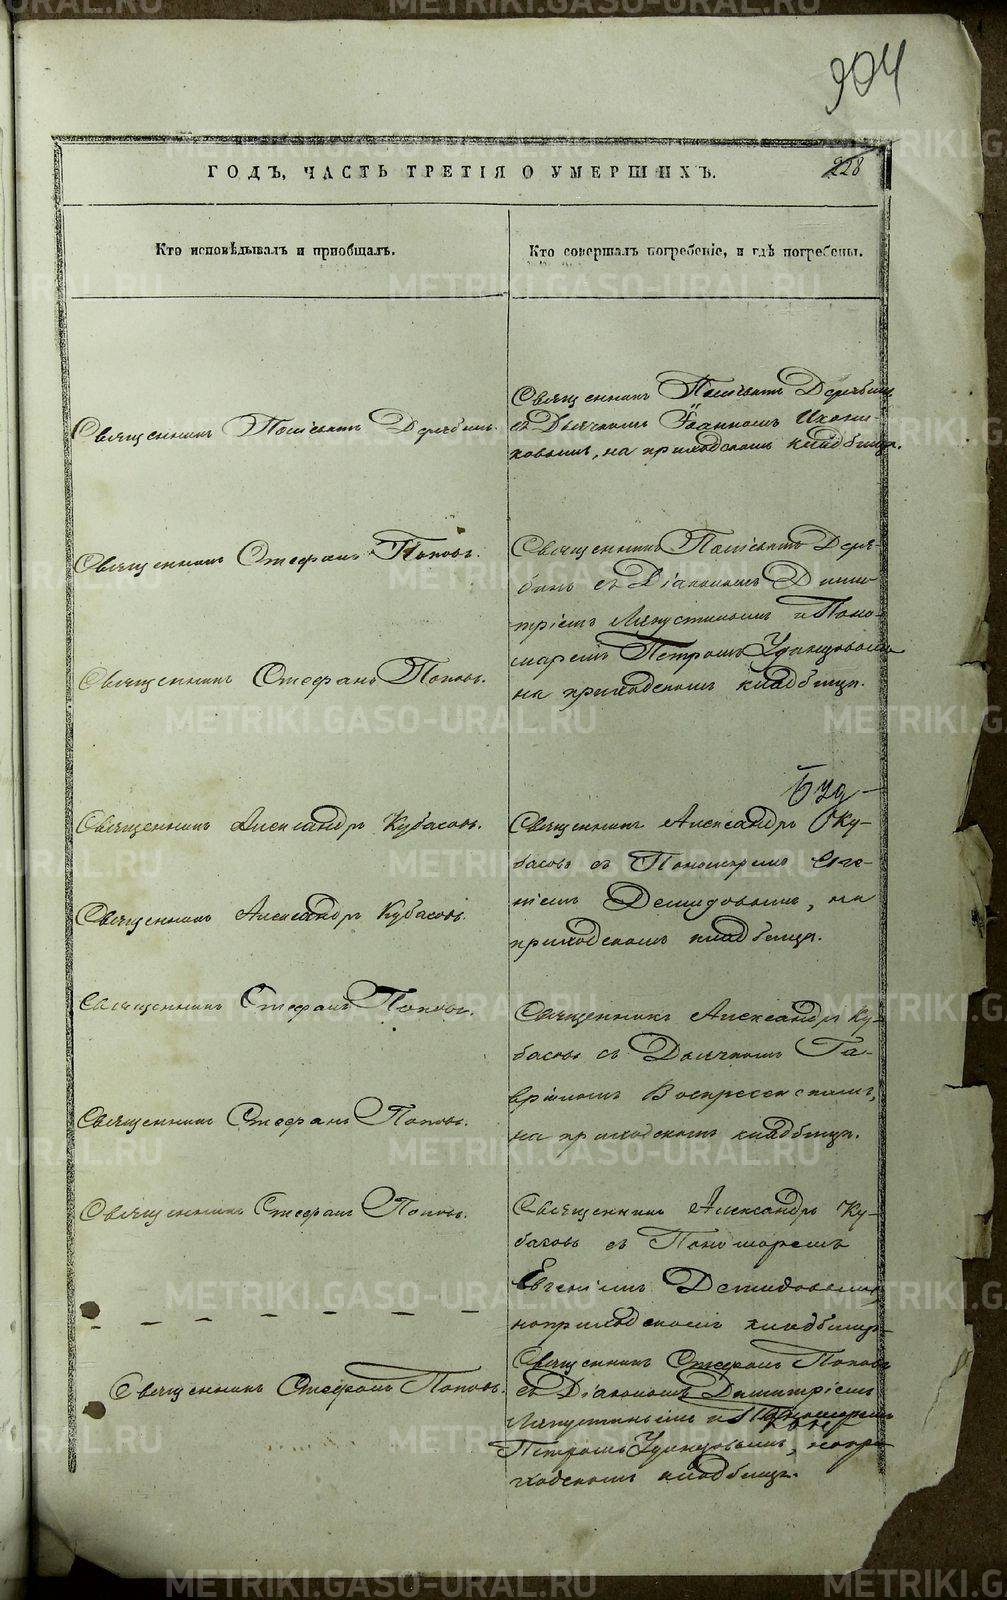 904
ГОДЪ, ЧАСТЬ ТРЕТІЯ О УМЕРШИХЪ.
228
Кто исповѣдывалъ и пріобщалъ.
Кто совершалъ погребеніе, и гдѣ погребены.
Священникъ Дерябинъ.
Священникъ Дерябинъ
съ Дьячкомъ Іоанномъ
на приходскомъ кладбищѣ.
Священникъ Стефанъ Поповъ.
Священникъ Стефанъ Поповъ.
Священникъ Деря-
бинъ съ Діакономъ Дими-
тріемъ Ляпустинымъ и Поно-
маремъ Петромъ Удинцовымъ
на приходскомъ кладбищѣ.
Священникъ Александръ Кубасовъ.
Священникъ Александръ Кубасовъ.
Священникъ Александръ Ку-
басовъ съ Пономаремъ Евге-
ніемъ Демидовымъ, на
приходскомъ кладбищѣ.
Священникъ Стефанъ Поповъ.
Священникъ Стефанъ Поповъ.
Священникъ Александръ Ку-
басовъ съ Дьячкомъ Га-
вріиломъ Воскресенскимъ,
на приходскомъ кладбищѣ.
Священникъ Стефанъ Поповъ.
Священникъ Александръ Ку-
басовъ съ Пономаремъ
Евгеніемъ Демидовымъ
на приходскомъ кладбищѣ
Священникъ Стефанъ Поповъ.
Священникъ Стефанъ Поповъ
съ Діакономъ Димитріемъ
Ляпустинымъ и Пономаремъ
Петромъ Удинцовымъ, на при-
ходскомъ кладбищѣ.
METRIKI.GASO-URAL.RU